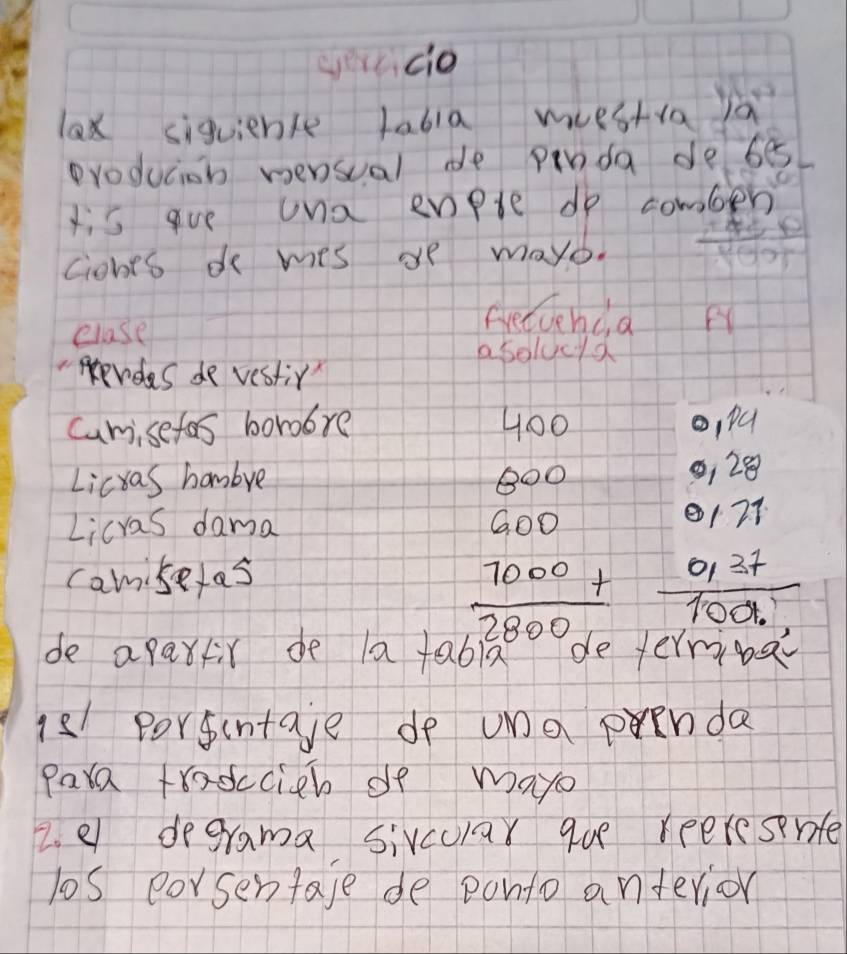 ejercicio
lax siguiente tabla muestra la
producion mensual de prnda de bes-
tis que una enpre de comben
ciones de mes de mayo.
clase frecuencia Fr
asolucta
"Prendas de vestir"
Camisetas hombre 400 0,14
Licras hombre 800 0,28
Licras dama 600 0,21
camisetas 1000 + 0,37
2800 100%
de apartir de la tabla de termina
1º porsentaje de una prenda
para
de mayo
2. el degrama sircular que reepresente
los porsentaje de ponto anterior